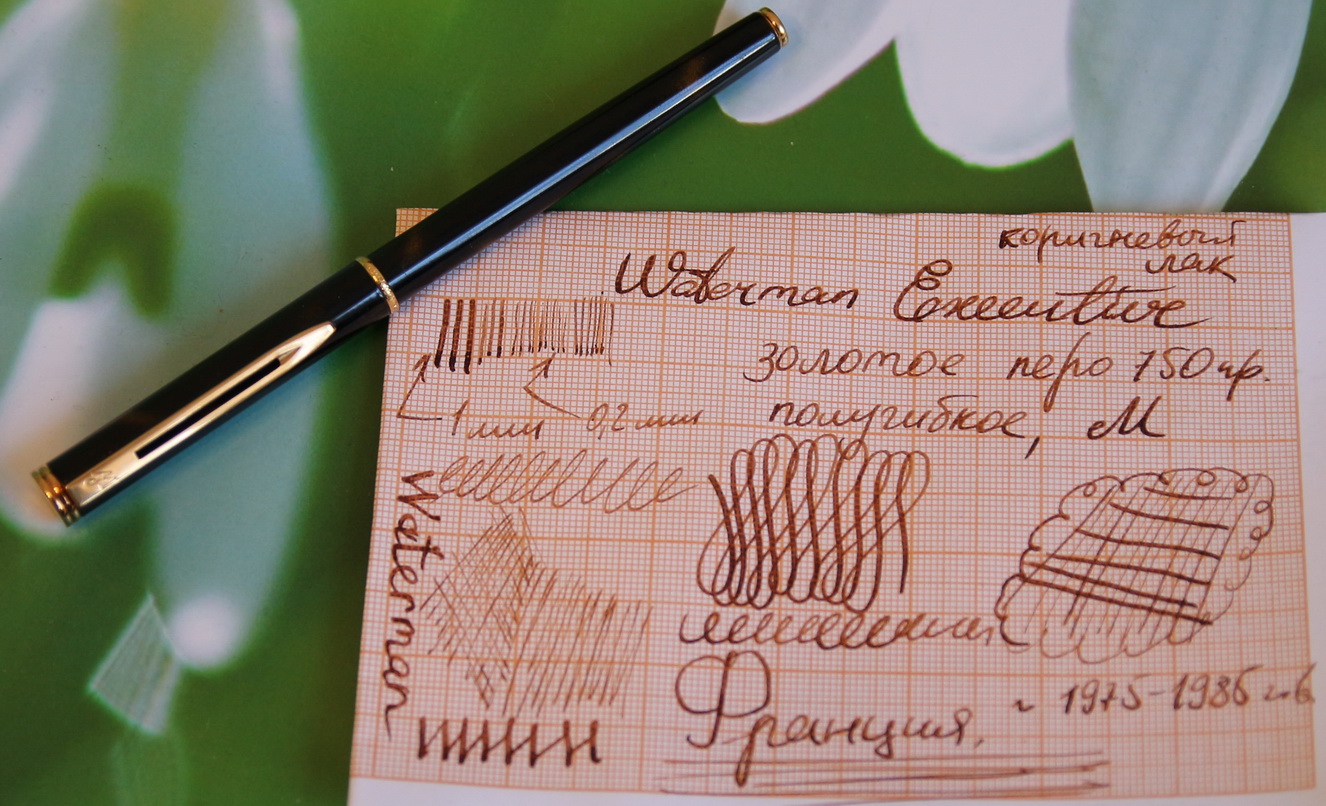 коричневый
лак
Waterman Executive
золотое перо 750 пр.
полугибкое, M
1 мм 0,2 мм
Waterman
Франция.
~ 1975-1985 г.в.